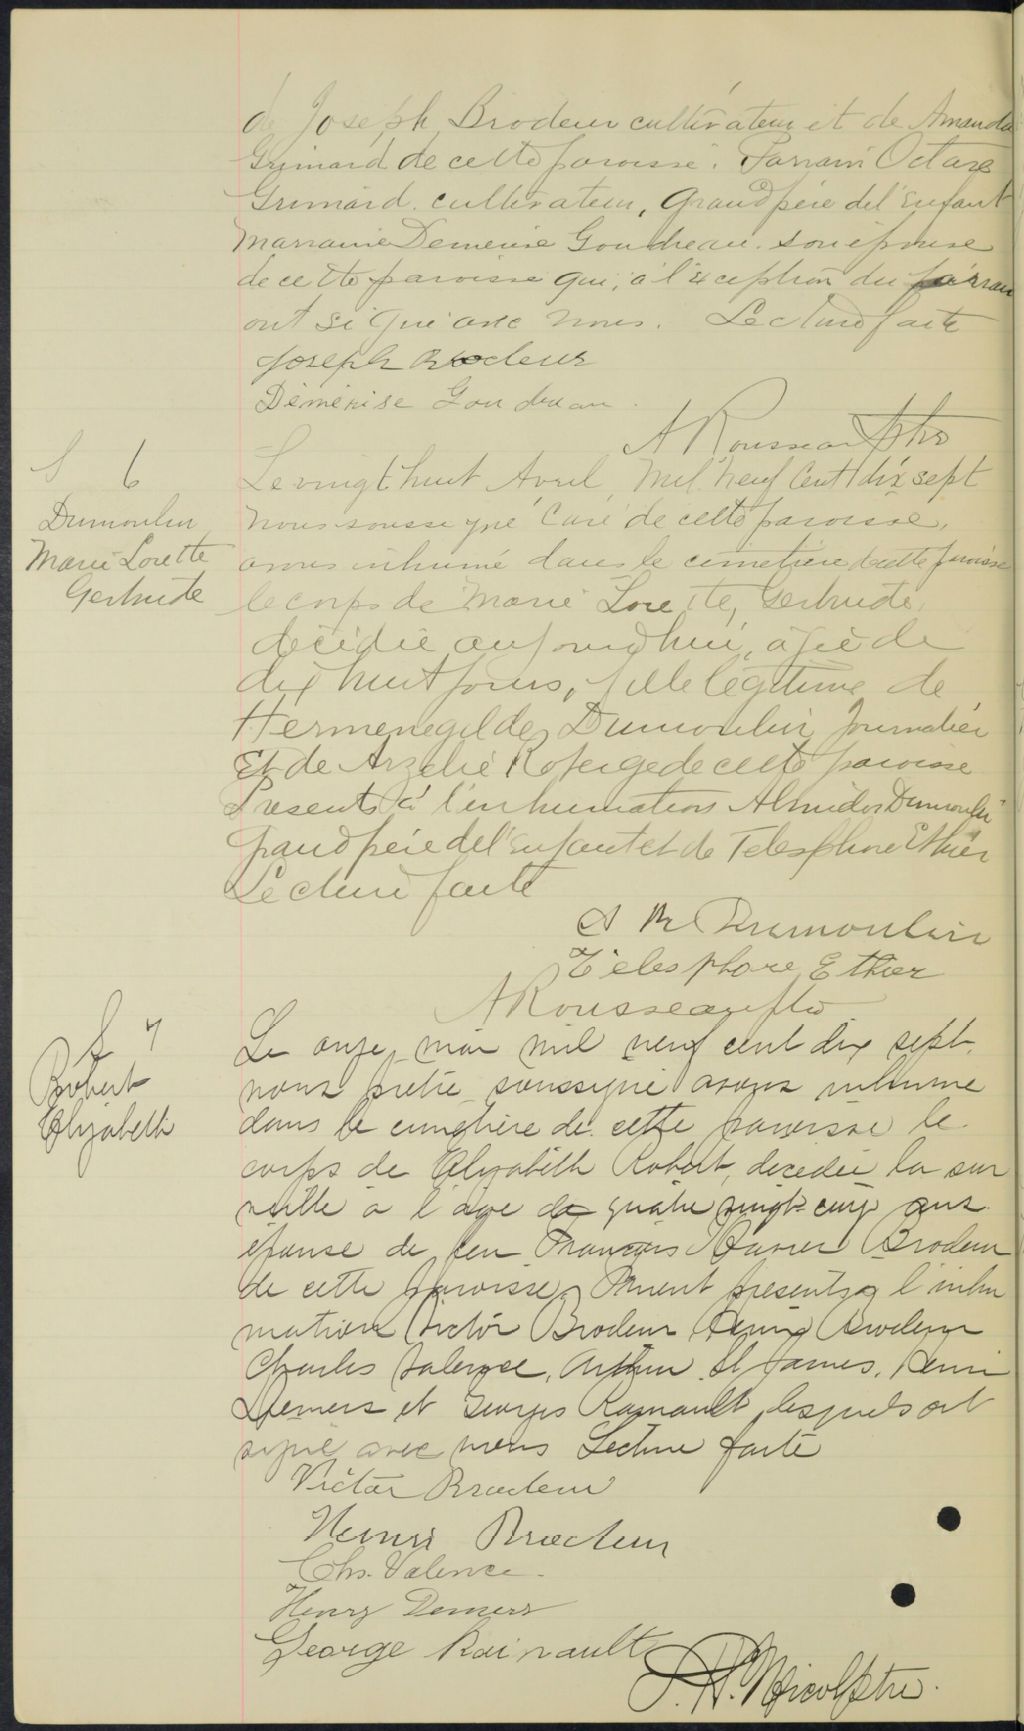 de Joseph Brodeur cultivateur et de Amanda
Grimard de cette paroisse. Parrain Octave
Grimard. cultivateur, Grand père del'Enfant
marraine Demerise Goudreau. son épouse
de cette paroisse qui, à l'éxception du parrain
ont signé avec nous. Lecture faite
Joseph Brodeur
Démérise Goudreau
A Rousseau ptre
S 6
Dumoulin
Marie Lorette
Gertrude
Le vingt huit Avril, Mil neuf Cent dix sept
nous soussigné Curé de cette paroisse,
avons inhumé dans le cimetière de cette paroisse
le corps de Marie Lorette, Gertrude,
décédée aujourd'hui, agée de
dix huit jours, fille légitime de
Hermenegilde Dumoulin Journalier
Et de Arzelie de cette paroisse
Presents à l'inhumation Dumoulin
grand père del'enfant et de Telesphore Ethier
Lecture faite
Dumoulin
Télesphore Ethier
A Rousseau ptre
S 7
Robert
Elizabeth
Le onze mai mil neuf cent dix sept.
nous prêtre soussigné avons inhumé
dans le cimetière de cette paroisse le
corps de Elizabeth Robert, decédée la sur
veille à l'age de quatre vingt-cinq ans
épouse de feu François Xavier Brodeur
de cette paroisse. Etaient presents à l'inhu
mation Victor Brodeur Henri Brodeur
Charles Valence, Arthur St James, Henri
Demers et Georges Rainault lesquels ont
signé avec nous Lecture faite
Victor Brodeur
Henri Brodeur
Chs. Valence.
Henry Demers
George Rainault
J. H. Nicol Ptre.